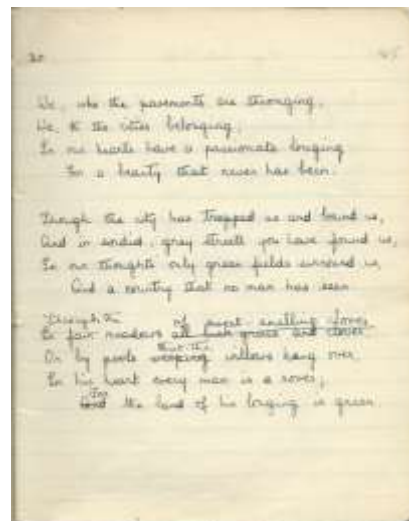 20 45
We, who the pavements are thronging,
We, to the cities belonging,
In our hearts have a passionate longing
For a beauty that never has been.
Though the city has trapped us and bound us,
And in sordid, grey streets you have found us,
In our thoughts only green fields surround us,
And a country that no man has seen
Through the of sweet smelling clover
In fair meadows all lush grass and clover
that the
Or by pools weeping willows hang over,
In his heart every man is a rover,
For
And the land of his longing is green.